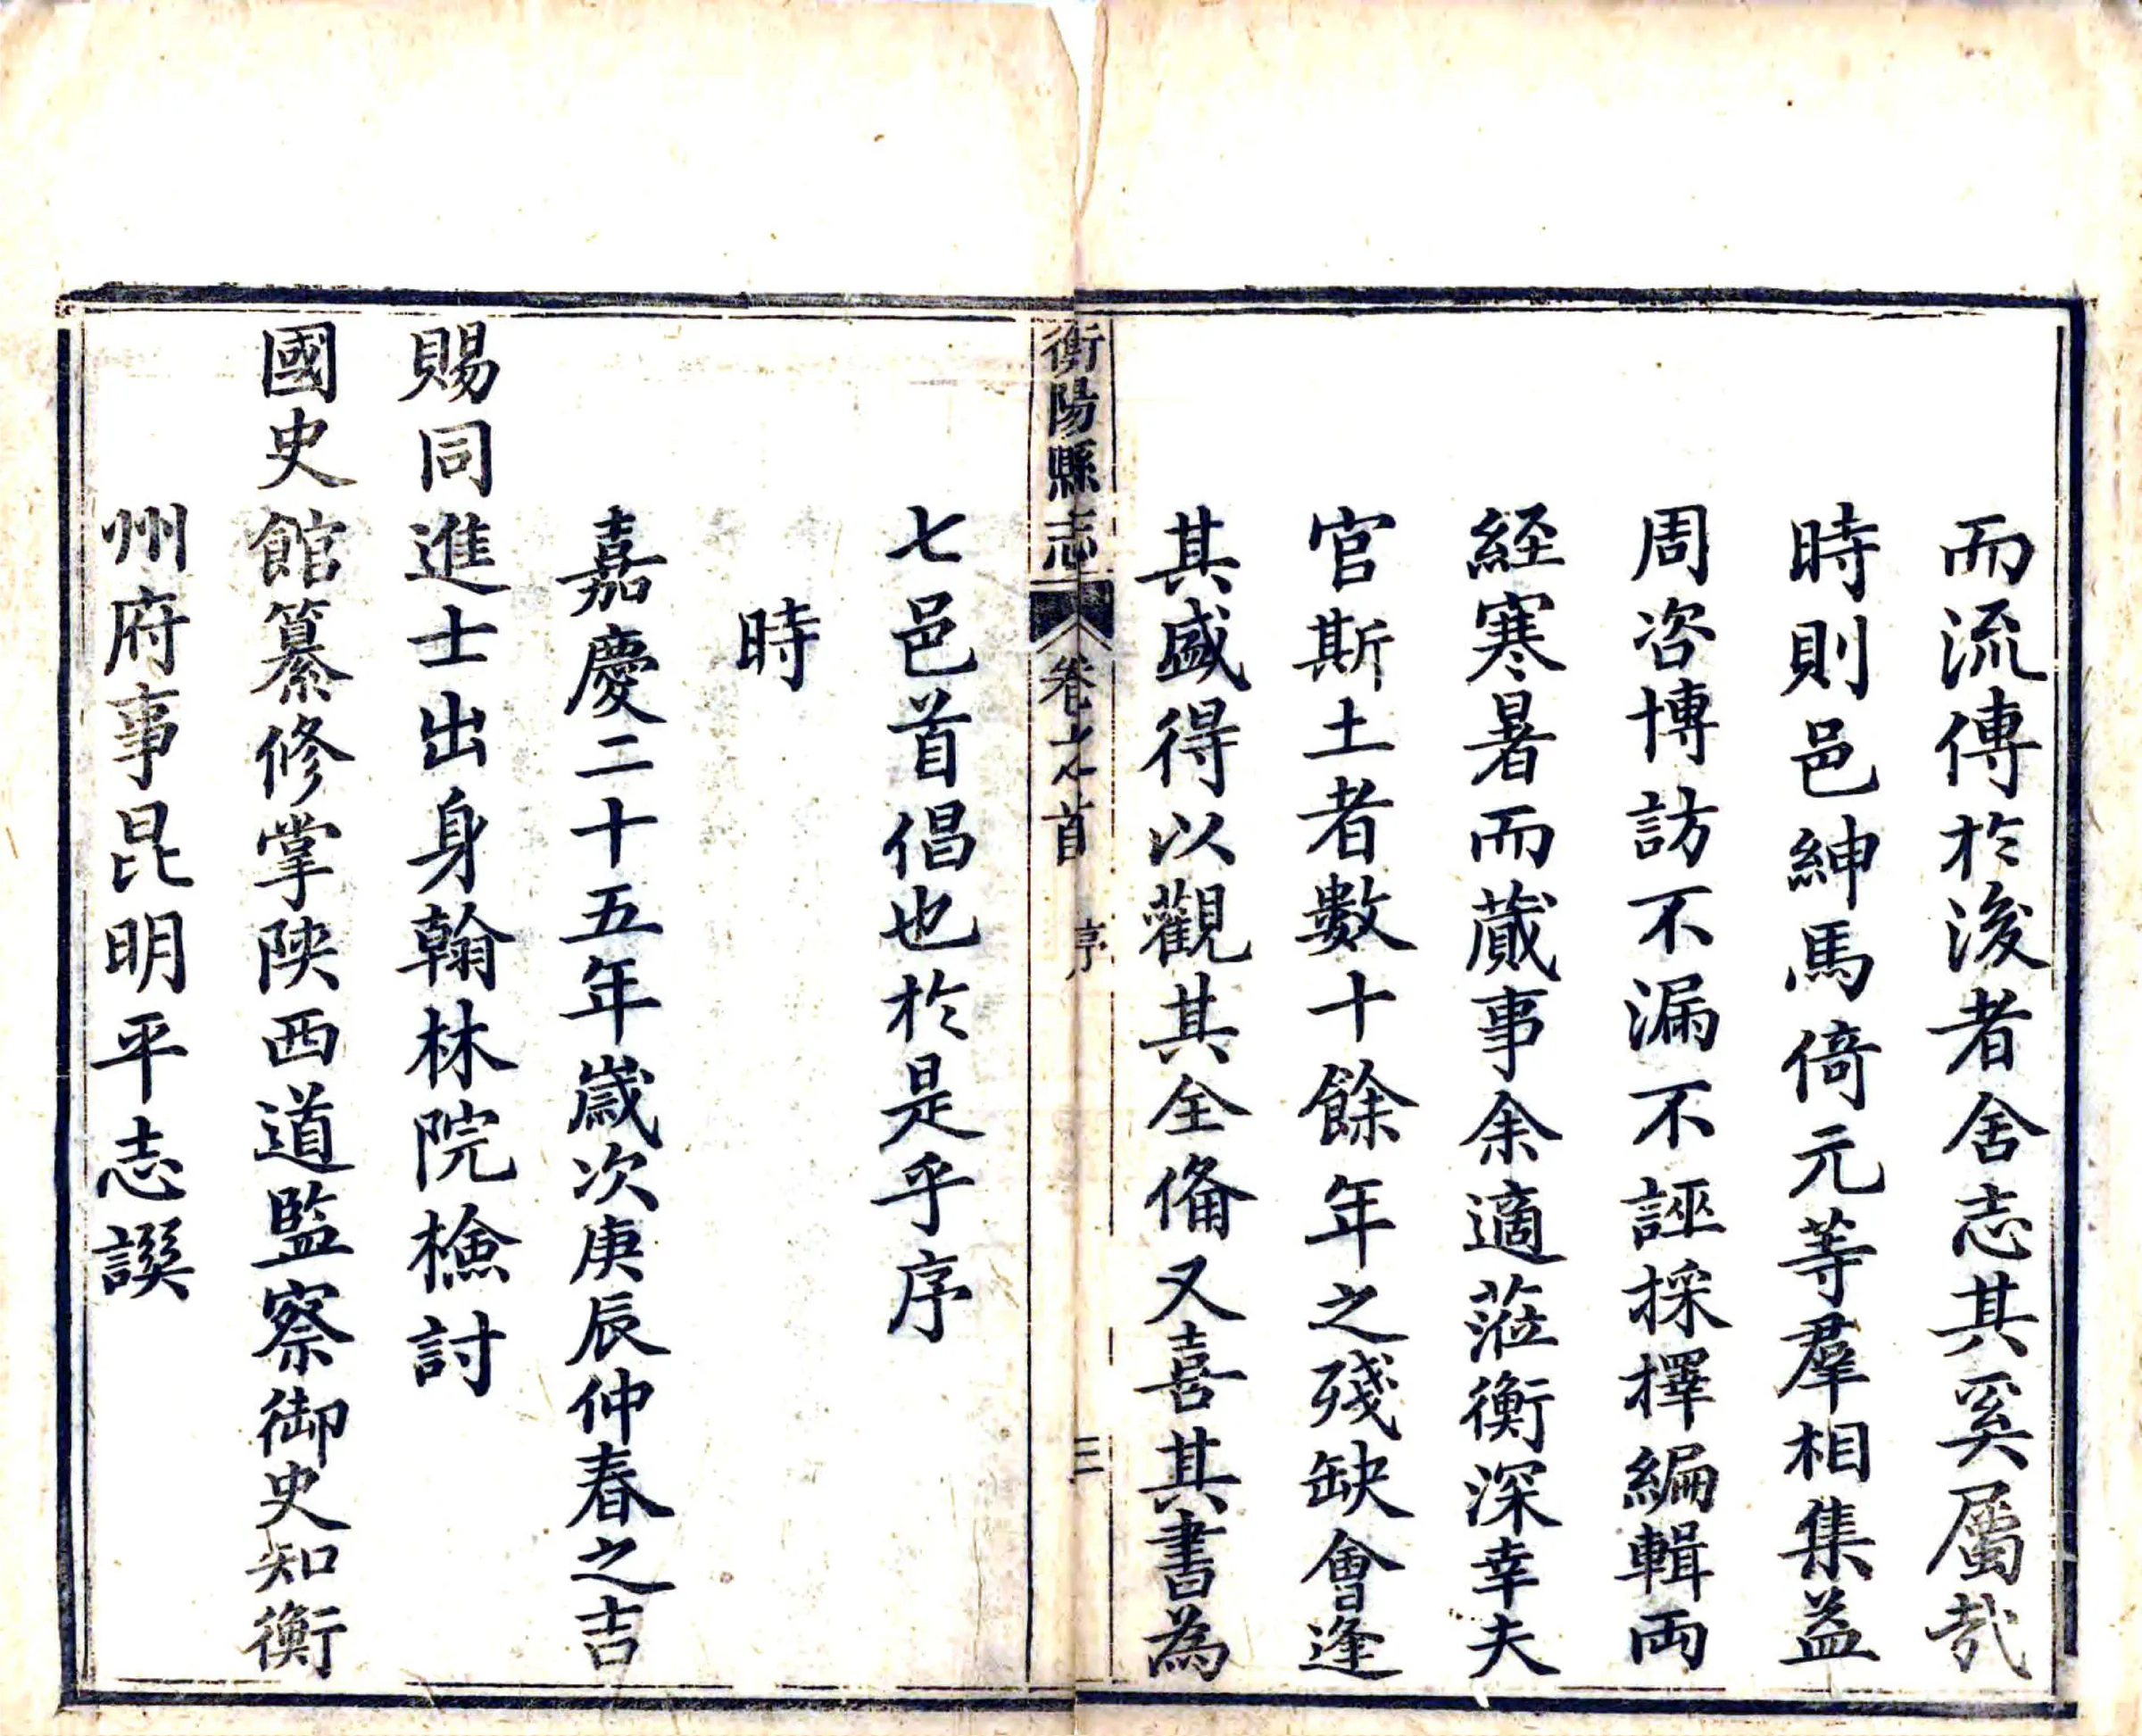 而流傳於後者舍志其奚屬哉
時則邑紳馬倚元等羣相集益
周咨博訪不漏不誣採擇編輯両
経寒暑而蕆事余適蒞衡深幸夫
官斯土者數十餘年之殘缺會逢
其盛得以觀其全俻又喜其書為
衡陽縣志 卷之首 序 三
七邑首倡也於是乎序
時
嘉慶二十五年嵗次庚辰仲春之吉
賜同進士出身翰林院檢討
國史館纂修掌陝西道監察御史知衡
州府事昆明平志譔